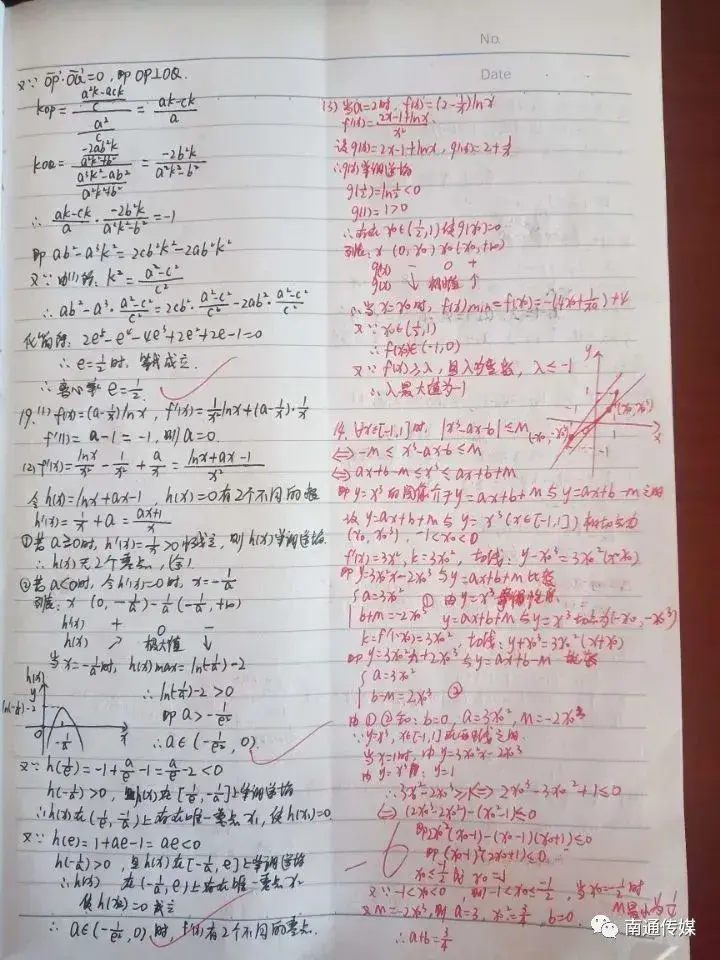 No.
Date
又∵ OP·OQ=0, 即OP⊥OQ.
kOP = (a²k-ack)/c / a²/c = (ak-ck)/a
kOQ = -2ab²k/(a²k²+b²) / (a³k²-ab²)/(a²k²+b²) = -2b²k/(a²k²-b²)
∴ (ak-ck)/a · -2b²k/(a²k²-b²) = -1
即 ab²-a³k² = 2cb²k²-2ab²k²
又∵由(1)防: k² = (a²-c²)/c²
∴ ab²-a³·(a²-c²)/c² = 2cb²·(a²-c²)/c² - 2ab²·(a²-c²)/c²
化简防: 2e⁵-e⁴-4e³+2e²+2e-1=0
∴ e=1/2时, 等式成立.
∴ 离心率 e=1/2.
19.(1) f(x)=(a-1/x)lnx, f'(x)=1/x² lnx+(a-1/x)·1/x
f'(1)= a-1=-1, 则a=0.
(2) f'(x)= lnx/x² - 1/x² + a/x = (lnx+ax-1)/x²
令h(x)=lnx+ax-1, h(x)=0有2个不同的根
h'(x)=1/x+a=(ax+1)/x
①若a≥0时, h'(x)=1/x>0恒成立, 则h(x)单调递增.
∴h(x)无2个零点, (舍)
②若a<0时, 令h'(x)=0时, x=-1/a
列表: x (0, -1/a) -1/a (-1/a, +∞)
h'(x) + 0 -
h(x) ↗ 极大值 ↓
当x=-1/a时, h(x)max=ln(-1/a)-2
h(x)
y
ln(-1/a)-2
0
-1/a
x
∴ln(-1/a)-2>0
即a>-1/e²
∴a∈(-1/e², 0).
又∵h(1/e)=-1+a/e-1=a/e-2<0
h(-1/a)>0, 且h(x)在[1/e, -1/a]上单调递增
∴h(x)在(1/e, -1/a)上存在唯一零点x₁, 使h(x₁)=0
又∵h(e)=1+ae-1=ae<0
h(-1/a)>0, 且h(x)在[-1/a, e]上单调递增
∴h(x) 在(-1/a, e)上存在唯一零点x₂
使h(x₂)=0成立
∴ a∈(-1/e², 0)时, f(x)有2个不同的零点.
(3) 当a=2时, f(x)=(2-1/x)lnx
f'(x)=(2x-1+lnx)/x²
设g(x)=2x-1+lnx, g'(x)=2+1/x
∴g(x)单调递增
g(1/2)=ln1/2<0
g(1)=1>0
∴存在x₀∈(1/2,1)使g(x₀)=0
列表: x (0, x₀) x₀ (x₀, +∞)
g(x) - 0 +
g(x) ↓ 极小值 ↑
∴当x=x₀时, f(x)min=f(x₀)=-(4x₀+1/x₀)+4
又∵x₀∈(1/2,1)
∴f(x₀)∈(-1,0)
又∵f(x)≥λ, 且λ为整数, λ≤-1
∴λ最大值为-1
y
1
-1
1
-1
x
(x₀, x₀³)
(-x₀, -x₀³)
14. ∀x∈[-1,1]时, |x³-ax-b|≤M
⇔ -M≤x³-ax-b≤M
⇔ ax+b-M≤x³≤ax+b+M
即y=x³的图像介于y=ax+b+M与y=ax+b-M之间
设y=ax+b+M与y=x³(x∈[-1,1])相切点为
(x₀, x₀³), -1<x₀<0
f'(x)=3x², k=3x₀², 切线: y-x₀³=3x₀²(x-x₀)
即y=3x₀²x-2x₀³与y=ax+b+M比较
{a=3x₀²
b+M=-2x₀³ ①
k=f'(-x₀)=3x₀² 切线: y+x₀³=3x₀²(x+x₀)
即y=3x₀²x+2x₀³与y=ax+b-M
{a=3x₀²
b-M=2x₀³ ②
由①②知: b=0, a=3x₀², M=-2x₀³
当x=1时, 由y=3x₀²x-2x₀³
由y=x³ y=1
⇔ (2x₀³-2x₀²)-(x₀²-1)≤0
即2x₀²(x₀-1)-(x₀-1)(x₀+1)≤0
即(x₀-1)²(2x₀+1)≤0
又∵-1<x₀<0, 则-1<x₀≤-1/2, 当x₀=-1/2时
又M=-2x₀³, 则a=3x₀²=3/4, b=0
∴a+b=3/4
-6
南通传媒